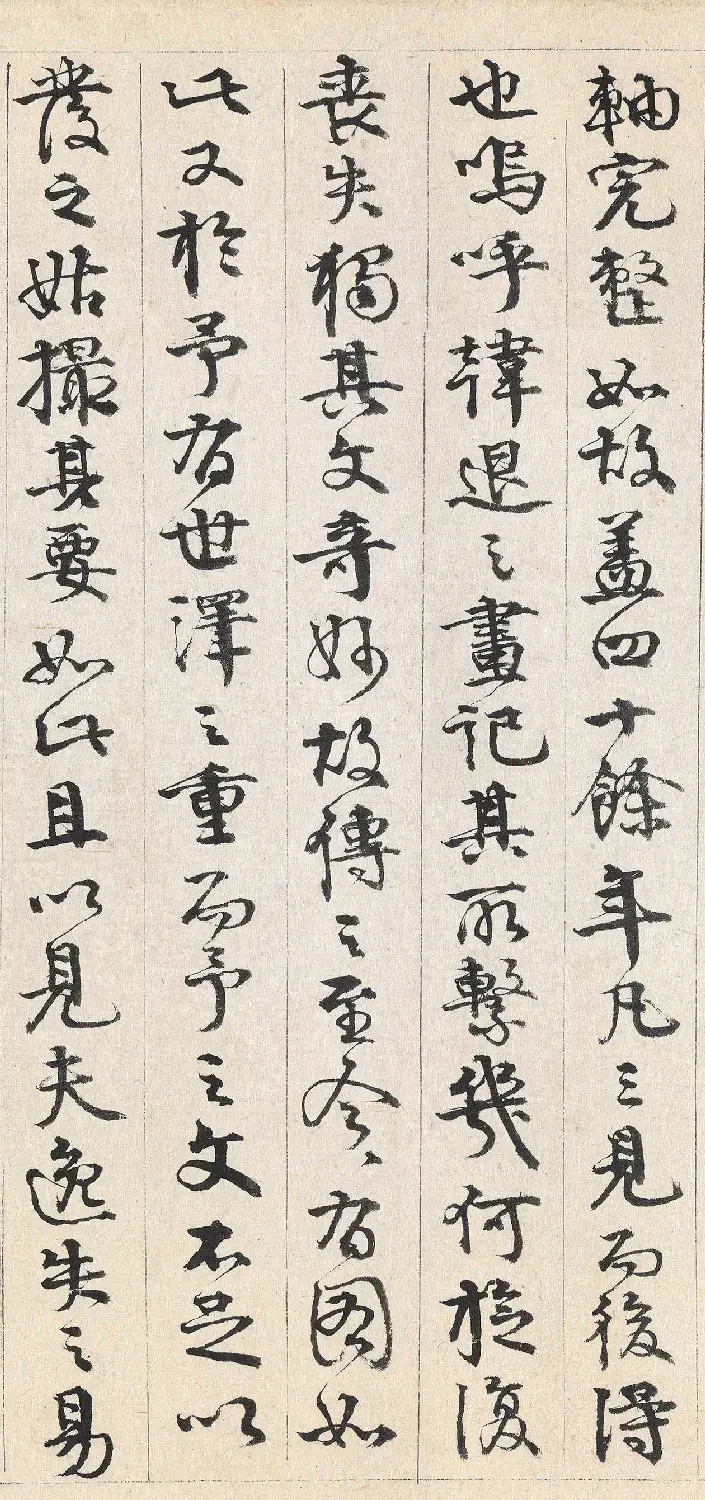 軸完整如故蓋四十餘年凡三見而後得
也嗚呼韓退之畫記其所繫幾何旋復
喪失獨其文奇妙故傳之至今今有圖如
此又於予有世澤之重而予之文不足以
發之姑撮其要如此且以見夫逸失之易